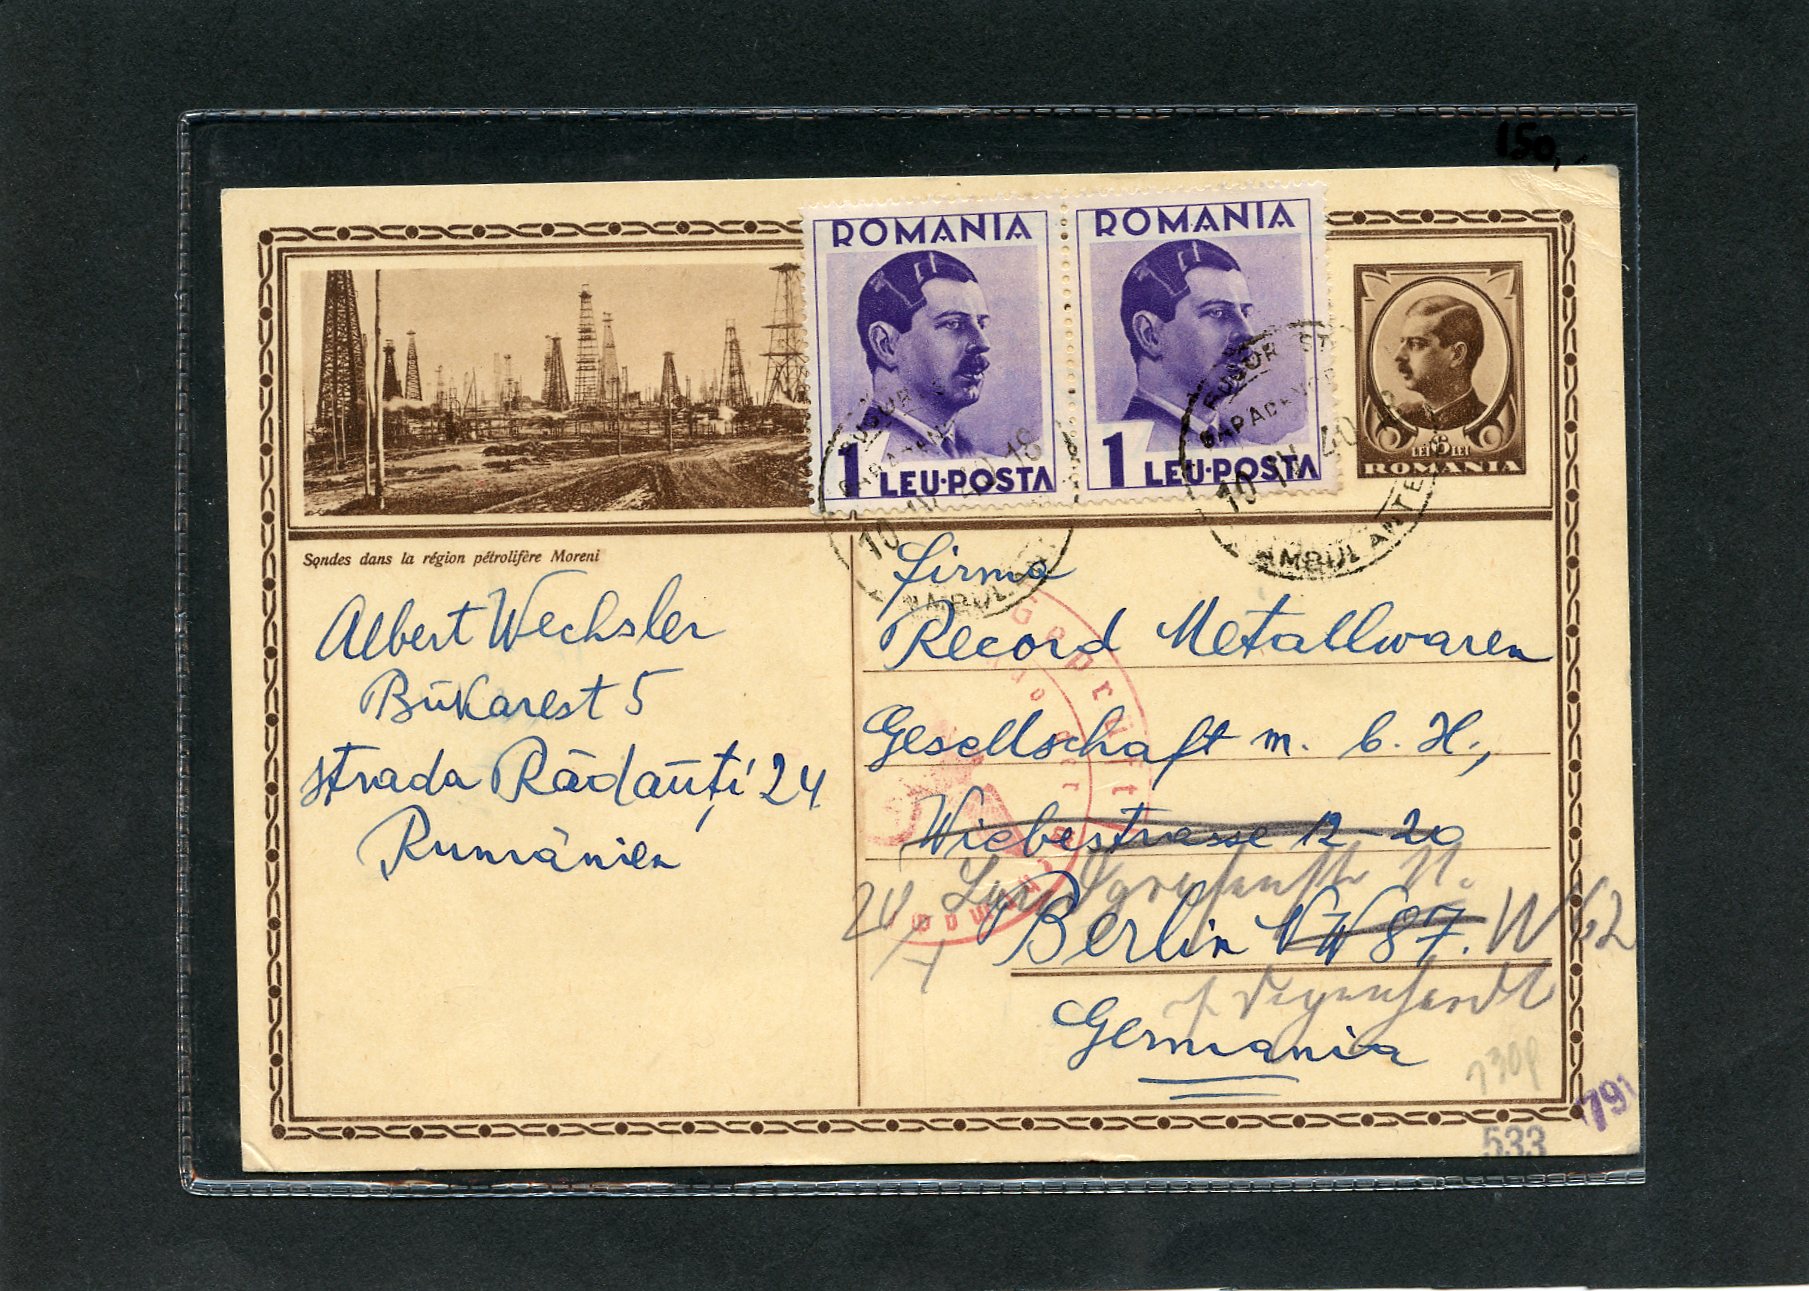 150,-
ROMANIA
1 LEU·POSTA
ROMANIA
1 LEU·POSTA
LEI 6 LEI
ROMANIA
10 IV 40 18
10 IV 40
AMBULANTE
Sondes dans la région pétrolifère Moreni
Albert Wechsler
Bŭkarest 5
strada Rădăŭți 24
Rumänien
Firma
Record Metallwaren
Gesellschaft m. b. H.,
Wiebestrasse 12-20
Berlin NW 87. W 62
Germania
Geprüft
730f
533
791